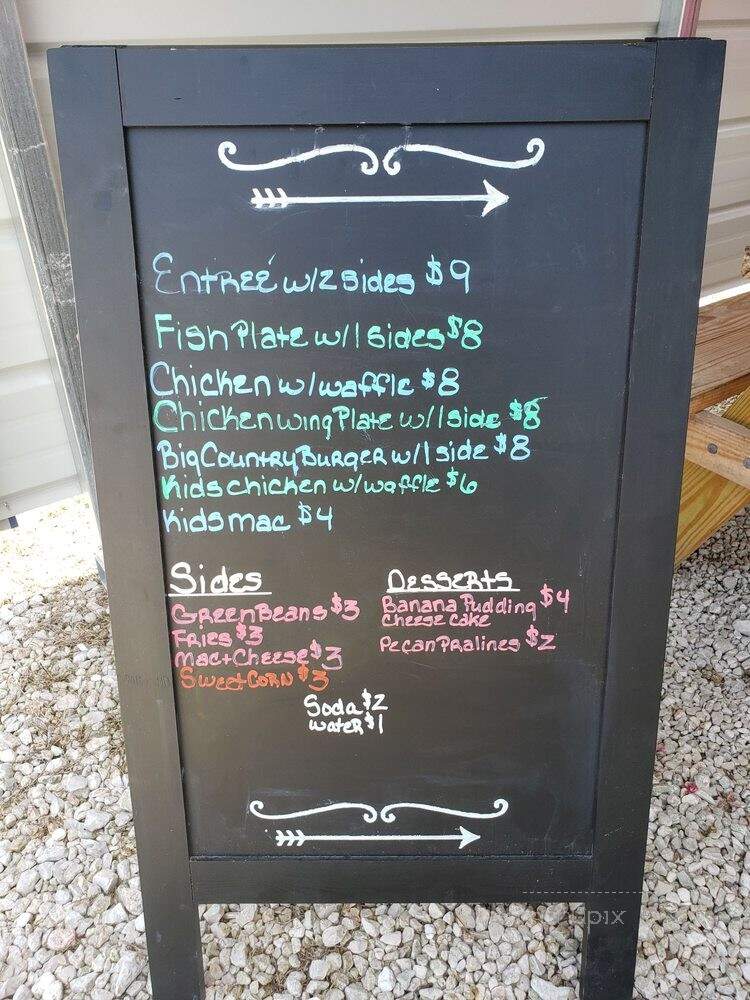 Entreé w/2 sides $9
Fish Plate w/1 sides $8
Chicken w/waffle $8
Chicken wing Plate w/1 side $8
Big Country Burger w/1 side $8
Kids chicken w/waffle $6
Kids mac $4
Sides
Green Beans $3
Fries $3
Mac + Cheese $3
Sweet Corn $3
Desserts
Banana Pudding $4
cheese cake
Pecan Pralines $2
Soda $2
water $1